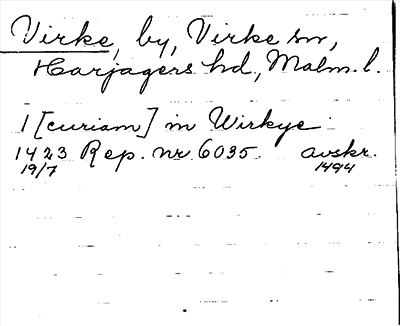 Virke, by, Virke sn,
Harjagers hd, Malm. l.
1 [curiam] in Wirkye
1423 Rep. nr 6035. avskr.
19/7 1494